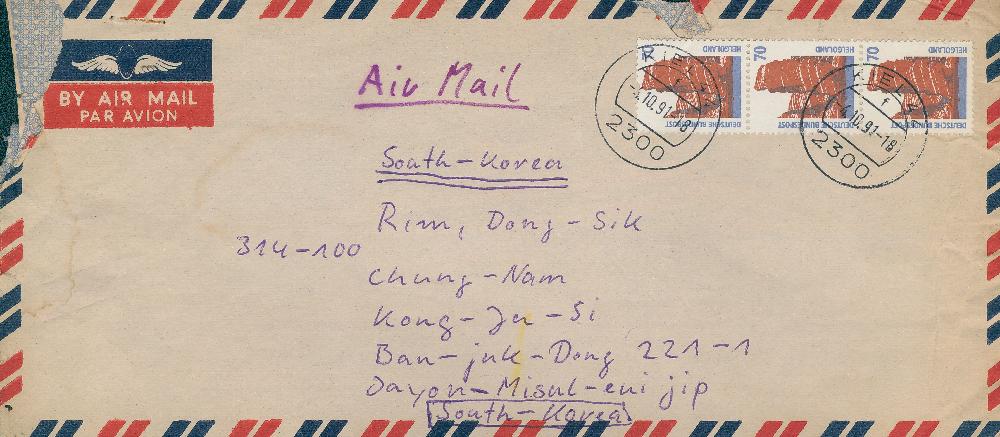 BY AIR MAIL
PAR AVION
Air Mail
HELGOLAND
70
HELGOLAND
70
HELGOLAND
DEUTSCHE BUNDESPOST
DEUTSCHE BUNDESPOST
DEUTSCHE BUNDESPOST
KIEL 1
-4.10.91-18
2300
KIEL 1
f
-4.10.91-18
2300
South-Korea
Rim, Dong-Sik
314-100
Chung-Nam
Kong-Ju-Si
Ban-juk-Dong 221-1
Dayon-Misul-eui jip
South-Korea